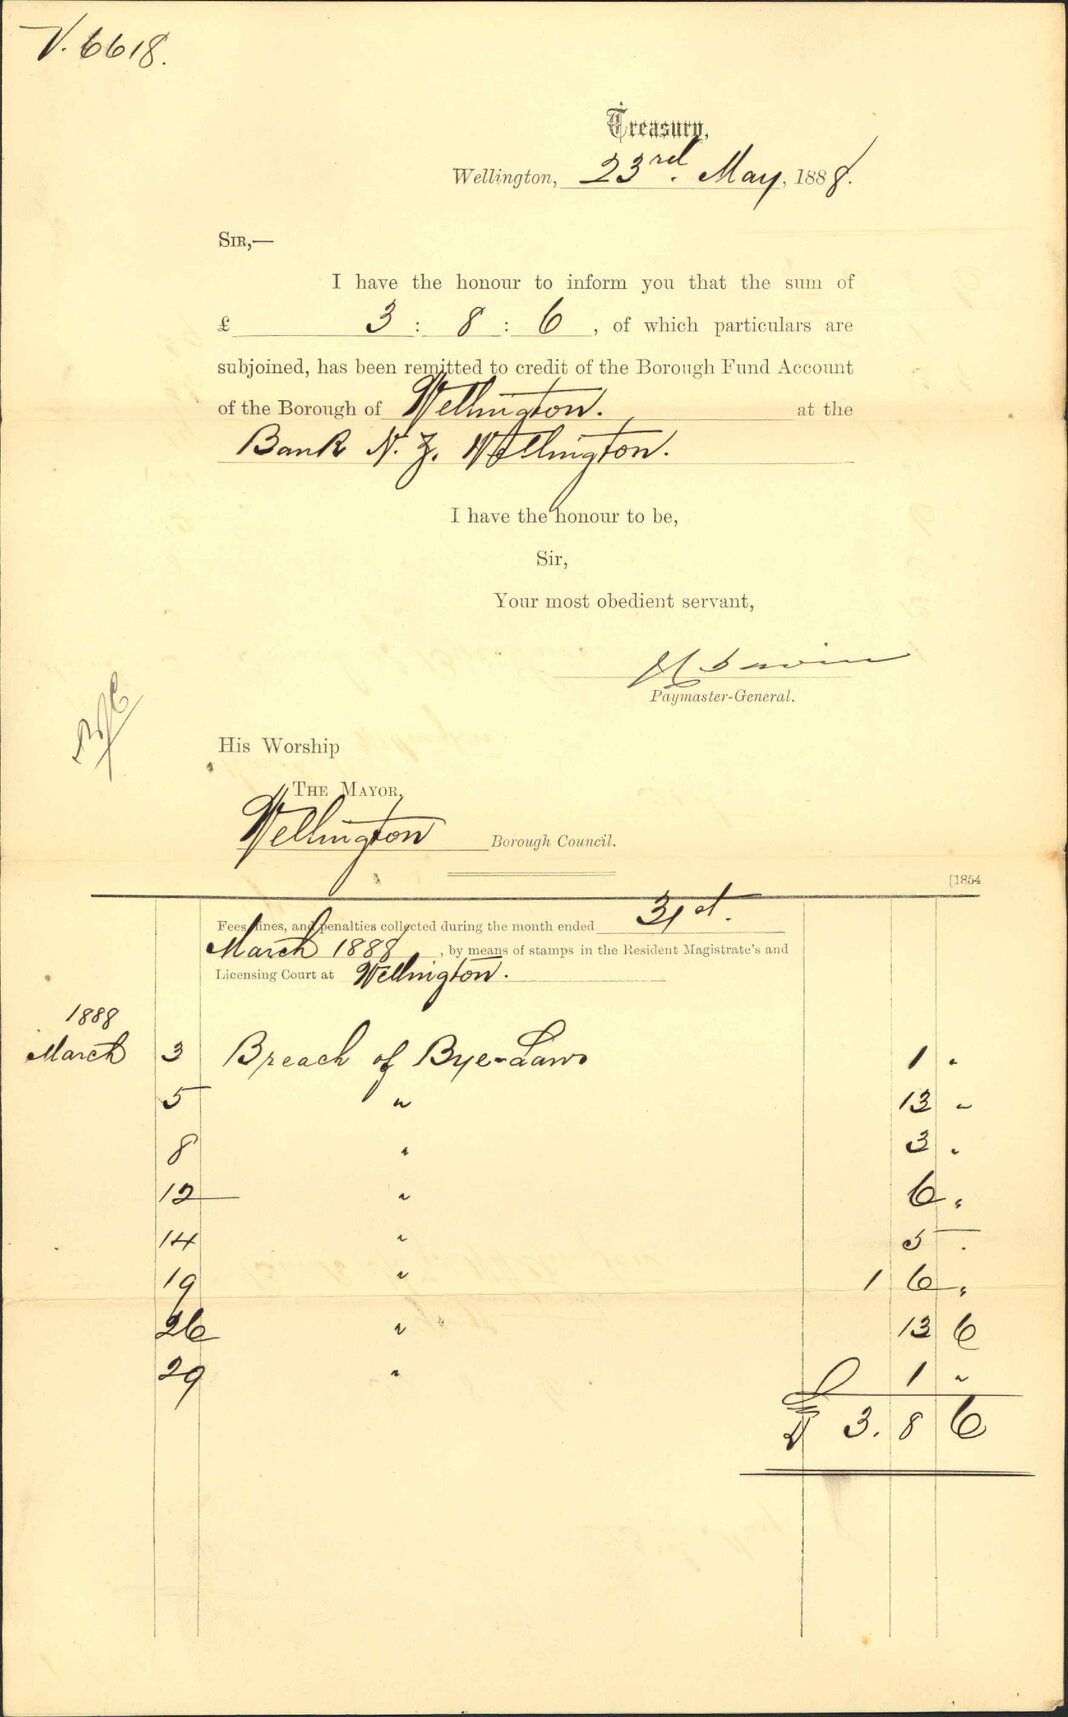 V. 6618.
Treasury,
Wellington, 23rd. May, 1888.
SIR,—
I have the honour to inform you that the sum of
£ 3 : 8 : 6 , of which particulars are
subjoined, has been remitted to credit of the Borough Fund Account
of the Borough of Wellington. at the
Bank N. Z. Wellington.
I have the honour to be,
Sir,
Your most obedient servant,
Paymaster-General.
His Worship
THE MAYOR,
Wellington Borough Council.
[1854
Fees, fines, and penalties collected during the month ended 31st.
March 1888 , by means of stamps in the Resident Magistrate's and
Licensing Court at Wellington.
1888
March 3 Breach of Bye-Laws 1 "
5 " 13 "
8 " 3 "
12 " 6 "
14 " 5 "
19 " 1 6 "
26 " 13 6
29 " 1 "
£ 3. 8 6